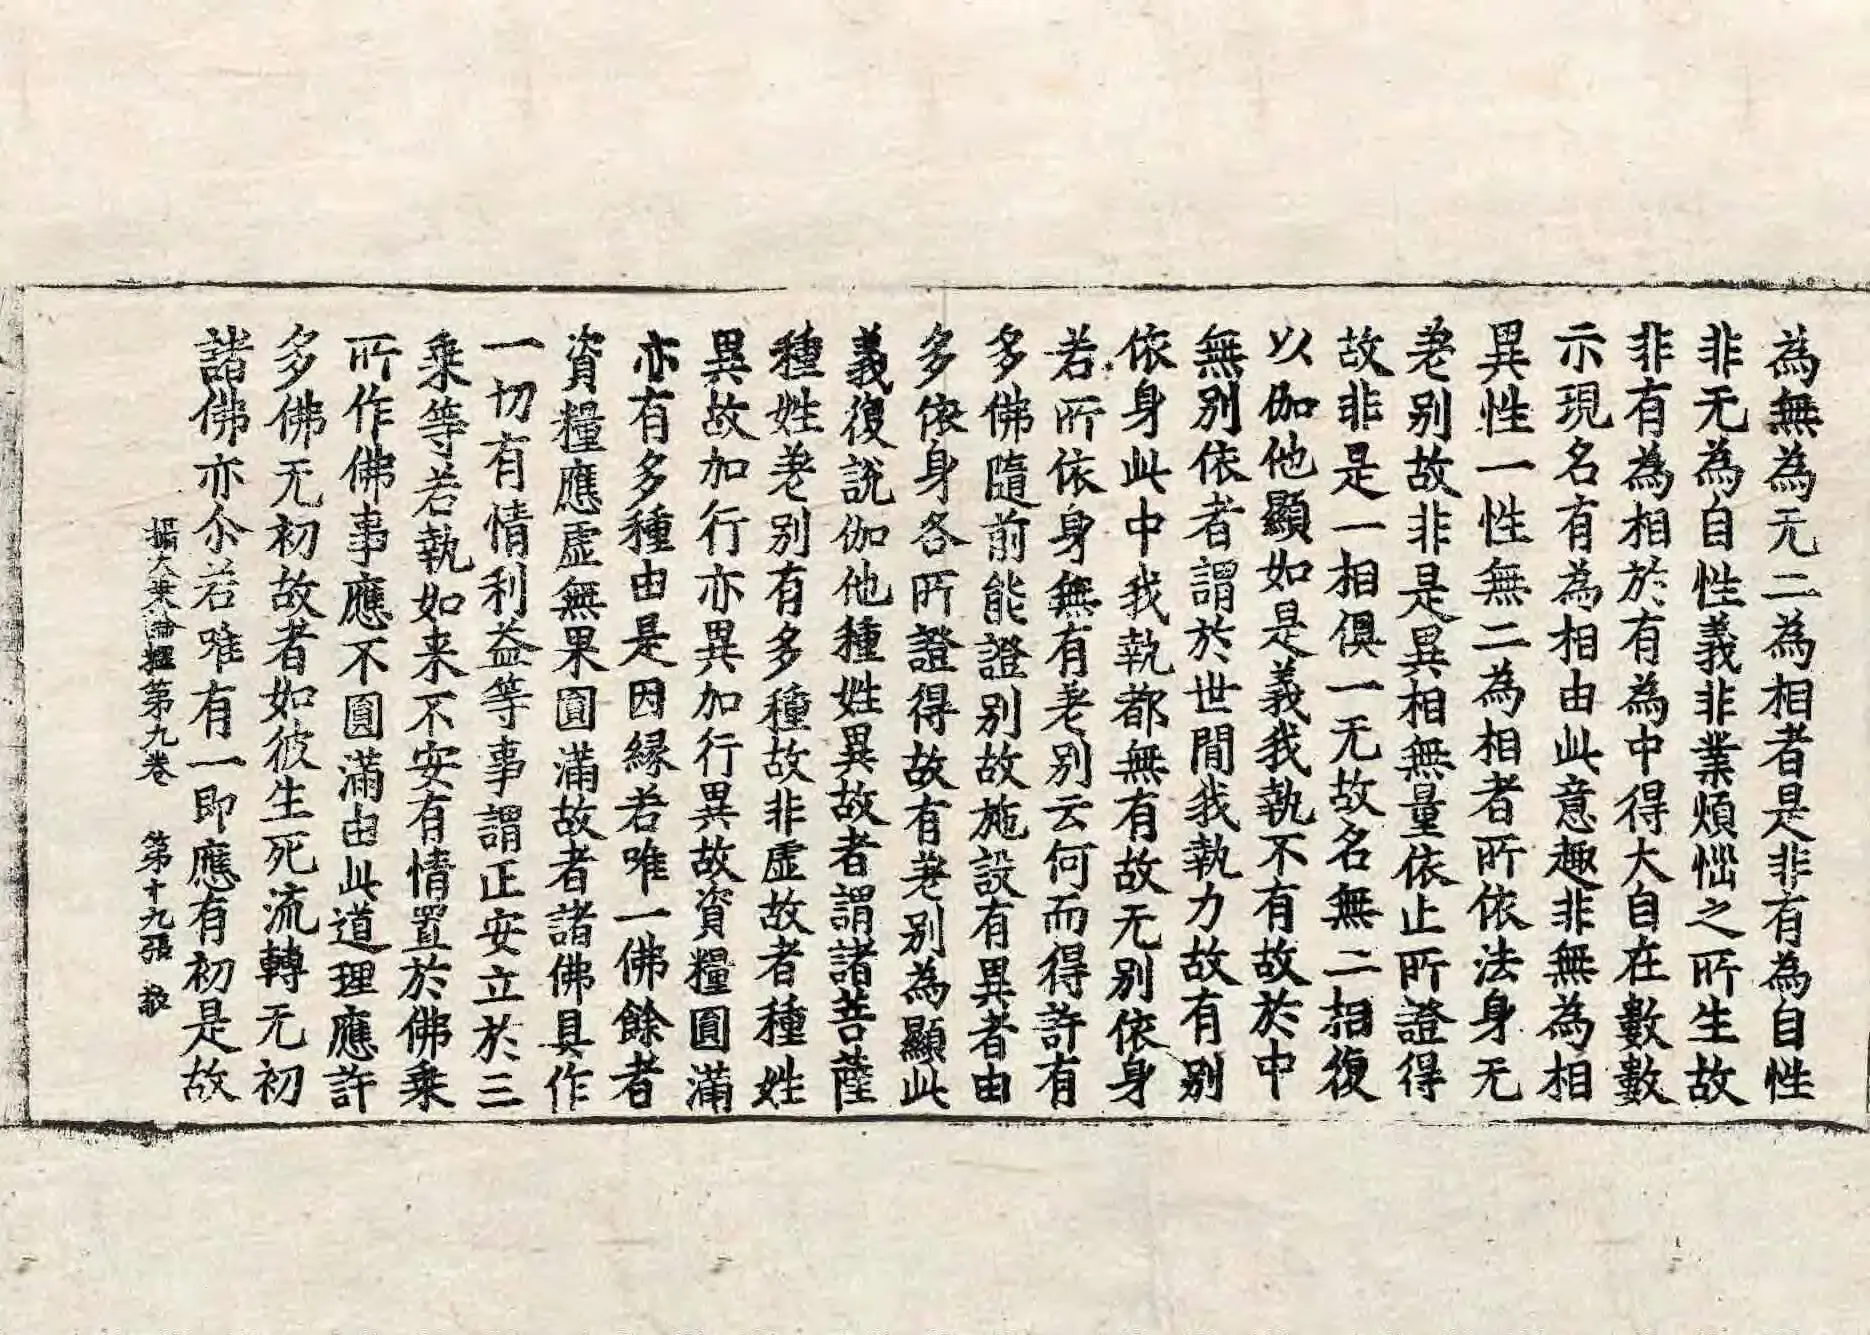 為無為无二為相者是非有為自性
非无為自性義非業煩惱之所生故
非有為相於有為中得大自在數數
示現名有為相由此意趣非無為相
異性一性無二為相者所依法身无
差別故非是異相無量依止所證得
故非是一相俱一无故名無二相復
以伽他顯如是義我執不有故於中
無別依者謂於世間我執力故有別
依身此中我執都無有故无別依身
若所依身無有差別云何而得許有
多佛隨前能證別故施設有異者由
多依身各所證得故有差別為顯此
義復說伽他種姓異故者謂諸菩薩
種姓差別有多種故非虛故者種姓
異故加行亦異加行異故資糧圓滿
亦有多種由是因緣若唯一佛餘者
資糧應虛無果圓滿故者諸佛具作
一切有情利益等事謂正安立於三
乘等若執如来不安有情置於佛乘
所作佛事應不圓滿由此道理應許
多佛无初故者如彼生死流轉无初
諸佛亦尒若唯有一即應有初是故
攝大乘論釋第九卷 第十九張